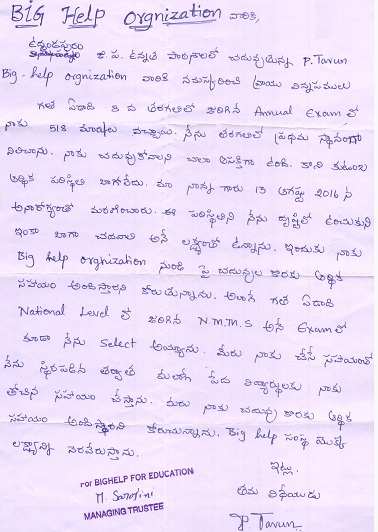 BIG Help Orgnization వారికి,
ఉద్దండపురం
జి.ప. ఉన్నత పాఠశాలలో చదువుతున్న P. Tarun
Big-help orgnization వారికి నమస్కరించి వ్రాయు విన్నపములు
గత ఏడాది 8 వ తరగతిలో జరిగిన Annual Exam లో
నాకు 518 మార్కులు వచ్చాయి. నేను తరగతిలో ప్రథమ స్థానంగా
నిలిచాను. నాకు చదువుకోవాలని చాలా ఆసక్తిగా ఉంది. కాని కుటుంబ
ఆర్థిక పరిస్థితి బాగోలేదు. మా నాన్న గారు 13 ఆగష్టు 2016 న
అనారోగ్యంతో మరణించారు. ఈ పరిస్థితిని నేను దృష్టిలో ఉంచుకుని
ఇంకా బాగా చదవాలి అనే లక్ష్యంతో ఉన్నాను. ఇందుకు నాకు
Big help orgnization నుండి పై చదువుల కొరకు ఆర్థిక
సహాయం అందిస్తారని కోరుతున్నాను. అలాగే గత ఏడాది
National Level లో జరిగిన N.M.M.S అనే Exam లో
కూడా నేను Select అయ్యాను. మీరు నాకు చేసే సహాయంతో
నేను స్థిరపడిన తర్వాత మీలాగే పేద విద్యార్థులకు నాకు
తోచిన సహాయం చేస్తాను. మీరు నాకు చదువు కొరకు ఆర్థిక
సహాయం అందిస్తారని కోరుచున్నాను. Big help సంస్థ మొక్క
లక్ష్యాన్ని నెరవేరుస్తాను.
ఇట్లు.
తమ విధేయుడు
P. Tarun
For BIGHELP FOR EDUCATION
M. Sarojini
MANAGING TRUSTEE